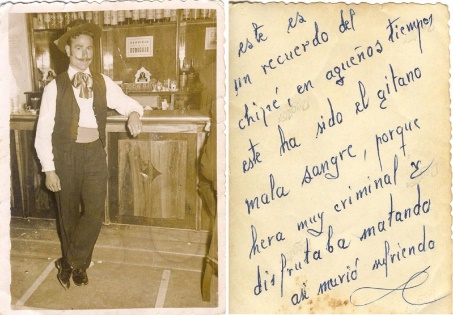 este es
un recuerdo del
chipé, en aqueños tiempos
este ha sido el gitano
mala sangre, porque
hera muy criminal y
disfrutaba matando
asi murió sufriendo